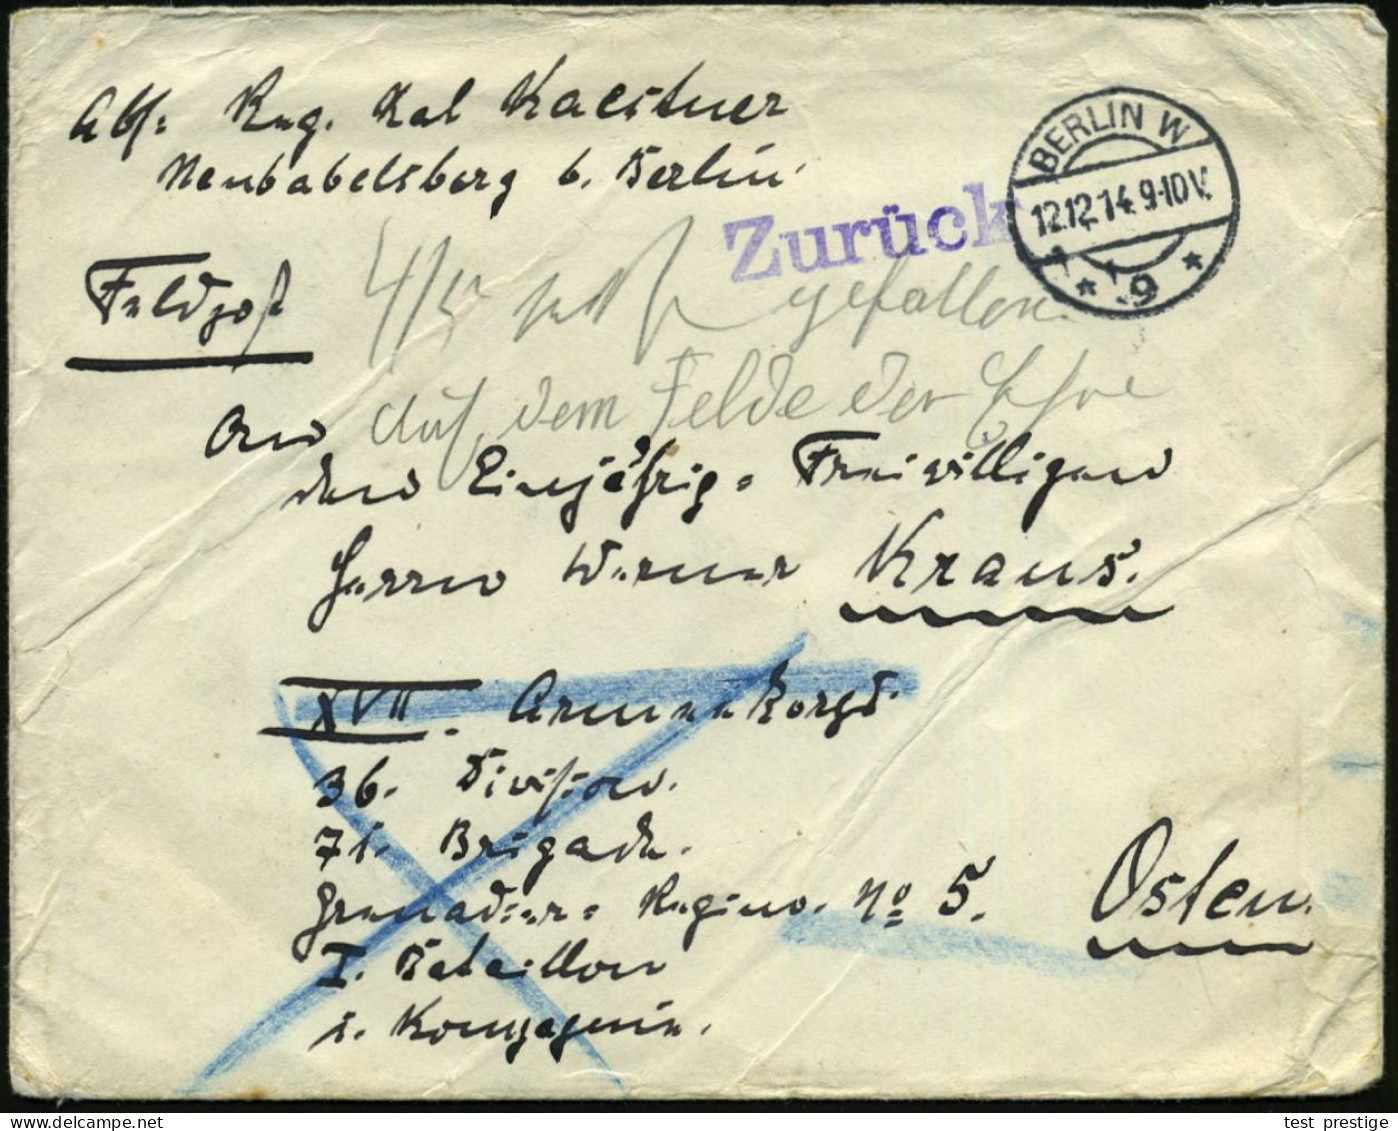 Abs: Reg. Rat Kaestner
Neubabelsberg b. Berlin
BERLIN W
12.12.14.9-10V.
* * 9 * *
Zurück
Feldpost
gefallen
auf dem Felde der Ehre
An
den Einjährig-Freiwilligen
Herrn Werner Kraus.
XVII. Armeekorps.
36. Division.
71. Brigade.
Grenadier-Regim. No 5.
Osten.
I. Bataillon
1. Kompagnie.
test prestige